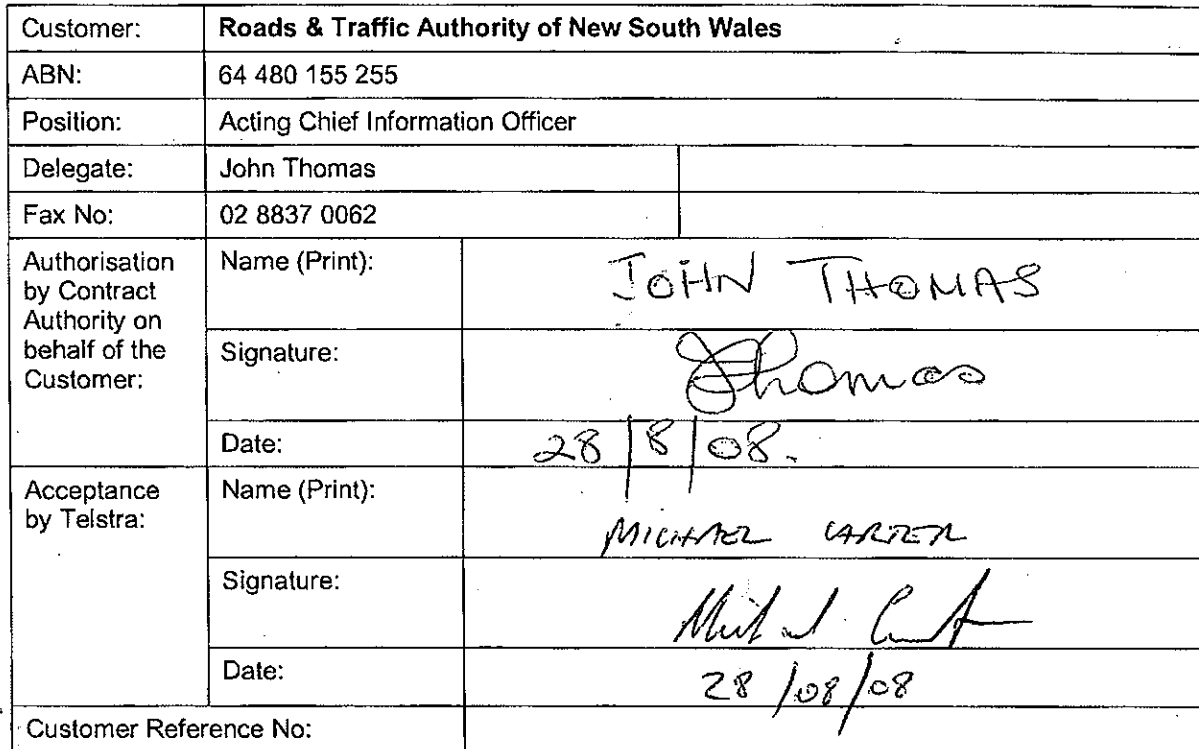 Customer: Roads & Traffic Authority of New South Wales
ABN: 64 480 155 255
Position: Acting Chief Information Officer
Delegate: John Thomas
Fax No: 02 8837 0062
Authorisation
by Contract
Authority on
behalf of the
Customer:
Name (Print): JOHN THOMAS
Signature: JThomas
Date: 28/8/08.
Acceptance
by Telstra:
Name (Print): MICHAEL CARTER
Signature:
Date: 28/08/08
Customer Reference No: